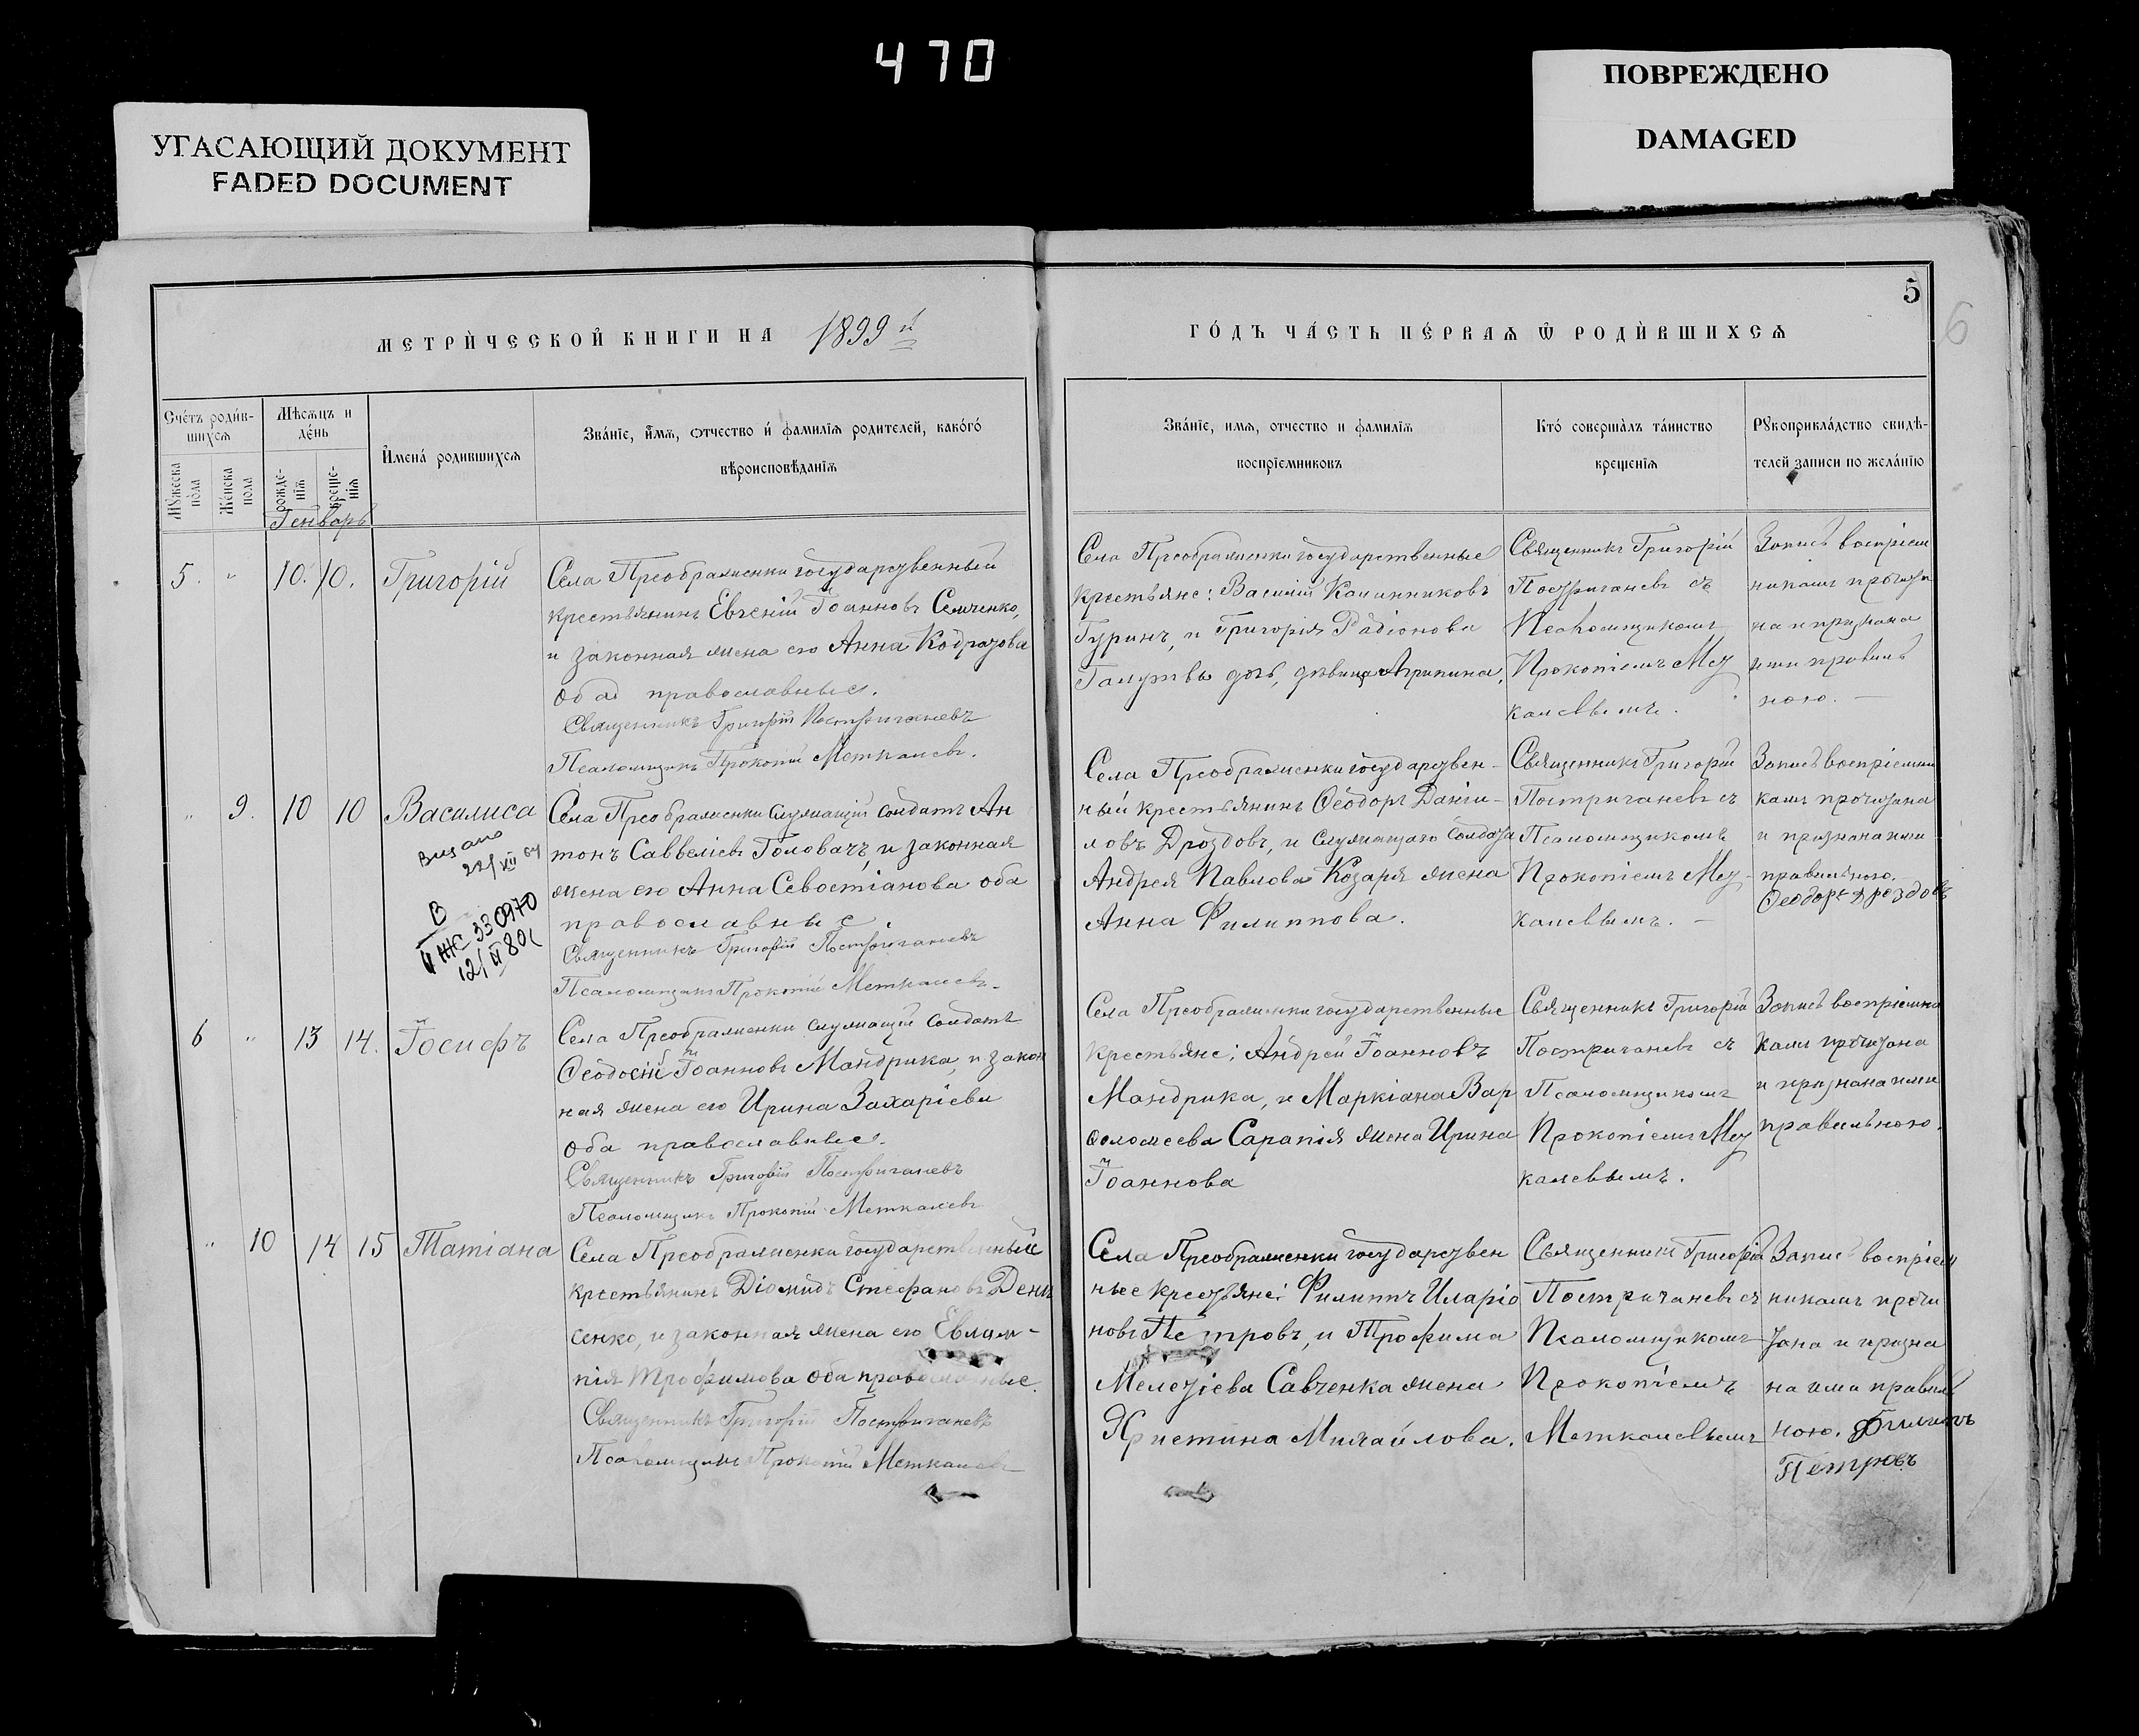 470
УГАСАЮЩИЙ ДОКУМЕНТ
FADED DOCUMENT
ПОВРЕЖДЕНО
DAMAGED
5
6
МЕТРИ́ЧЕСКОЙ КНИГИ НА 1899 й
ГО́ДЪ ЧА́СТЬ ПЕ́РВАЯ Ѿ РОДИ́ВШИХСЯ
Сче́тъ роди́в-
шихся
Мꙋ́жеска по́ла
Же́нска пола
Мѣ́сяцъ и де́нь
рожде-
нія
креще-
нія
Генварь
Имена́ родившихся
Зва́ніе, и́мя, отчество и́ фамилія родителей, како́го́
вѣроисповѣ́данія
Зва́ніе, имя, отчество и фамилія
воспріемниковъ
Кто́ соверша́лъ та́инство
крещенія
Рꙋкоприкла́дство свидѣ́-
телей записи по жела́нію
5. " 10. 10. Григорій
Села Преображенки государственный
крестьянинъ Евгеній Іоанновъ Семченко,
и законная жена его Анна Кодратова
оба православные.
Священникъ Григорій Постригачевъ
Псаломщикъ Прокопій Меткалевъ.
Села Преображенки государственные
крестьяне: Василій Калинниковъ
Гуринъ, и Григорія Радіонова
дочь, дѣвица Агрипина.
Священникъ Григорій
Постригачевъ съ
Псаломщикомъ
Прокопіемъ Мет
калевымъ.
Запись воспріем
никамъ прочита
на и признана
ими правиль
ною. —
" 9. 10 10 Василиса
Села Преображенки служащій солдатъ Ан
тонъ Саввеліевъ Головачъ, и законная
жена его Анна Севостіанова оба
православные.
Священникъ Григорій Постригачевъ
Псаломщикъ Прокопій Меткалевъ.
22/XII 64
В
II ЖС 330970
12/IV 80г
Села Преображенки государствен-
ный крестьянинъ Ѳеодоръ Даніи-
ловъ Дроздовъ, и служащаго солдата
Андрея Павлова Козаря жена
Анна Филиппова.
Священникъ Григорій
Постригачевъ съ
Псаломщикомъ
Прокопіемъ Мет-
калевымъ. —
Запись воспріемни
камъ прочитана
и признана ими
правильною.
Ѳеодоръ Дроздовъ
6 " 13 14. Іосифъ
Села Преображенки служащій солдатъ
Ѳеодосій Іоанновъ Мандрика, и закон
ная жена его Ирина Захаріева
оба православные.
Священникъ Григорій Постригачевъ
Псаломщикъ Прокопій Меткалевъ
Села Преображенки государственные
крестьяне: Андрей Іоанновъ
Мандрика, и Маркіана Вар
ѳоломеева Сарапія жена Ирина
Іоаннова
Священникъ Григорій
Постригачевъ съ
Псаломщикомъ
Прокопіемъ Мет
калевымъ.
Запись воспріемни
камъ прочитана
и признана ими
правильною.
" 10 14 15 Татіана
Села Преображенки государственный
крестьянинъ Діомидъ Стефановъ Дени
сенко, и законная жена его Евлам-
пія Трофимова оба православные.
Священникъ Григорій Постригачевъ
Псаломщикъ Прокопій Меткалевъ
Села Преображенки государствен
ные крестьяне: Филиппъ Иларіо
новъ Петровъ, и Трофима
Мелетіева Савченка жена
Христина Михайлова.
Священникъ Григорій
Постригачевъ съ
Псаломщикомъ
Прокопіемъ
Меткалевымъ
Запись воспріем
никамъ прочи
тана и призна
на ими правиль
ною. Филипъ
Петровъ